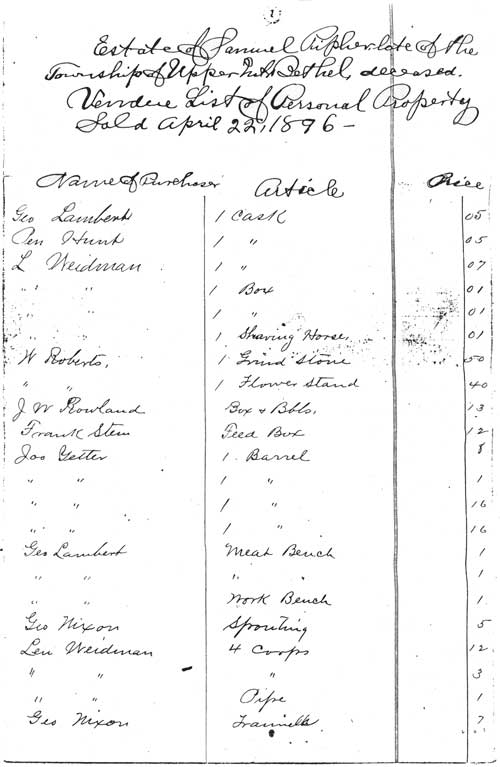 1
Estate of Samuel Pipher late of the
Township of Upper Mt Bethel, deceased.
Vendue List of Personal Property
Sold April 22, 1896 –
Name of Purchaser Article Price
Geo Lambert 1 Cask 05
Pen Hunt 1 " 05
L Weidman 1 " 07
" " 1 Box 01
" " 1 " 01
" " 1 Shaving Horse, 01
W Roberts, 1 Grind Stone 50
" " 1 Flower Stand 40
J W Rowland Box & Bbls, 13
Frank Stem Feed Box 12
Jos Getter 1 Barrel 8
" " 1 " 1
" " 1 " 16
" " 1 " 16
Geo Lambert Meat Bench 1
" " " 1
" " Work Bench 1
Geo Nixon Spouting 5
Len Weidman 4 12
" " " 3
" " Pipe 1
Geo Nixon 7